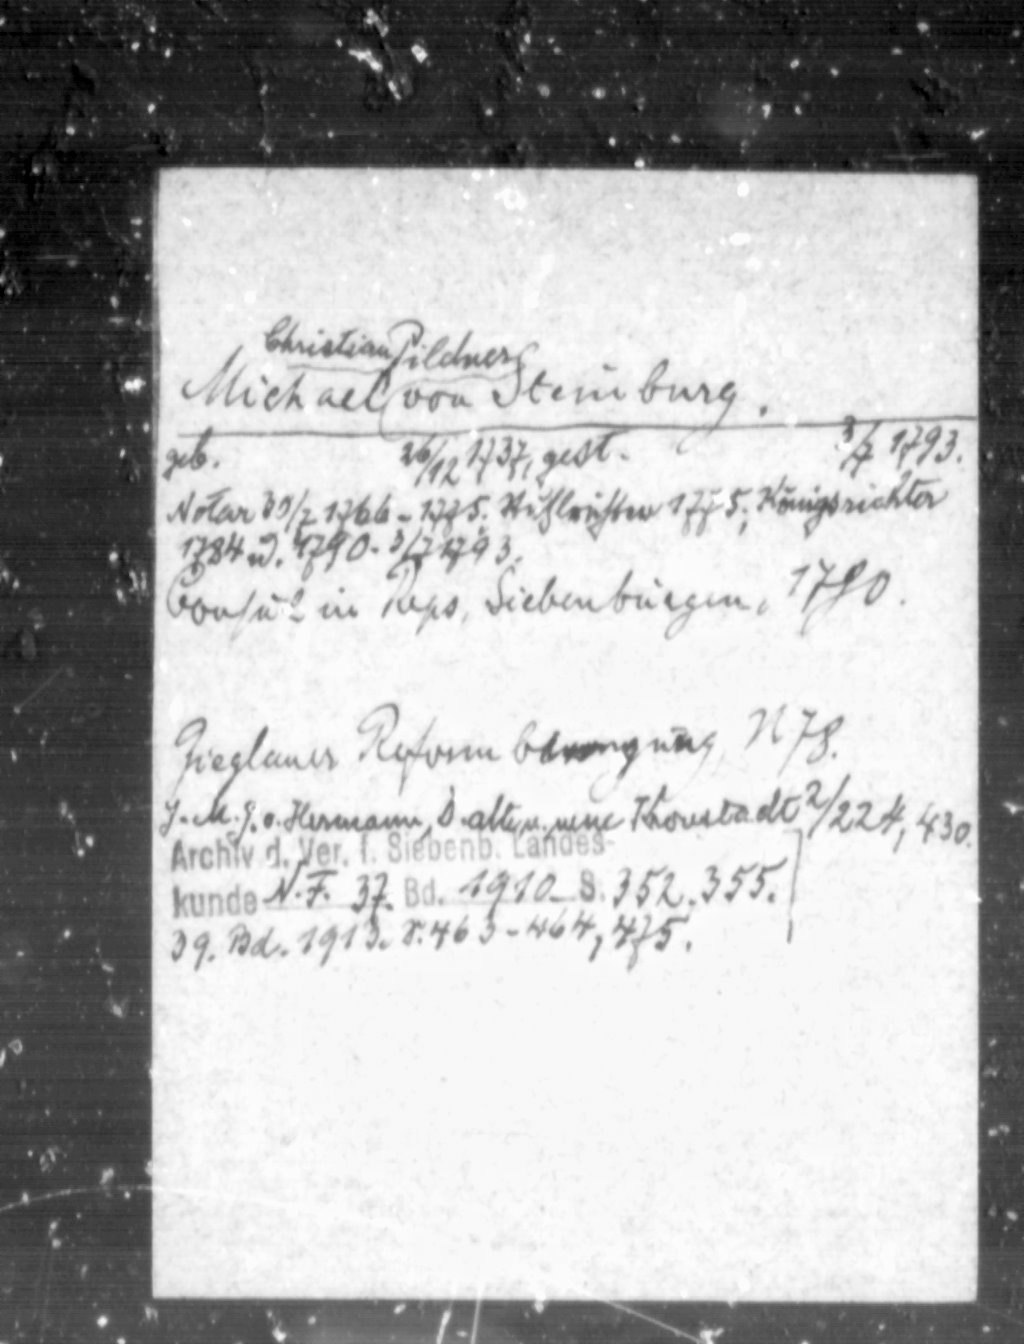 Christian Pildner
Michael von Steinburg.
geb. 26/12 1737, gest. 3/7 1793.
Notar 30/7 1766 - 1775. Stuhlrichter 1775, Königsrichter
1784 u. 1790 - 3/7 1793.
Consul in Reps, Siebenbürgen, 1780.
Zieglauer Reform bewegung, N 78.
J. M. G. v. Hermann, D. alte u. neue Kronstadt 2/224, 430.
Archiv d. Ver. f. Siebenb. Landes-
kunde N. F. 37. Bd. 1910 S. 352. 355.
39. Bd. 1913. S. 463 - 464, 475.